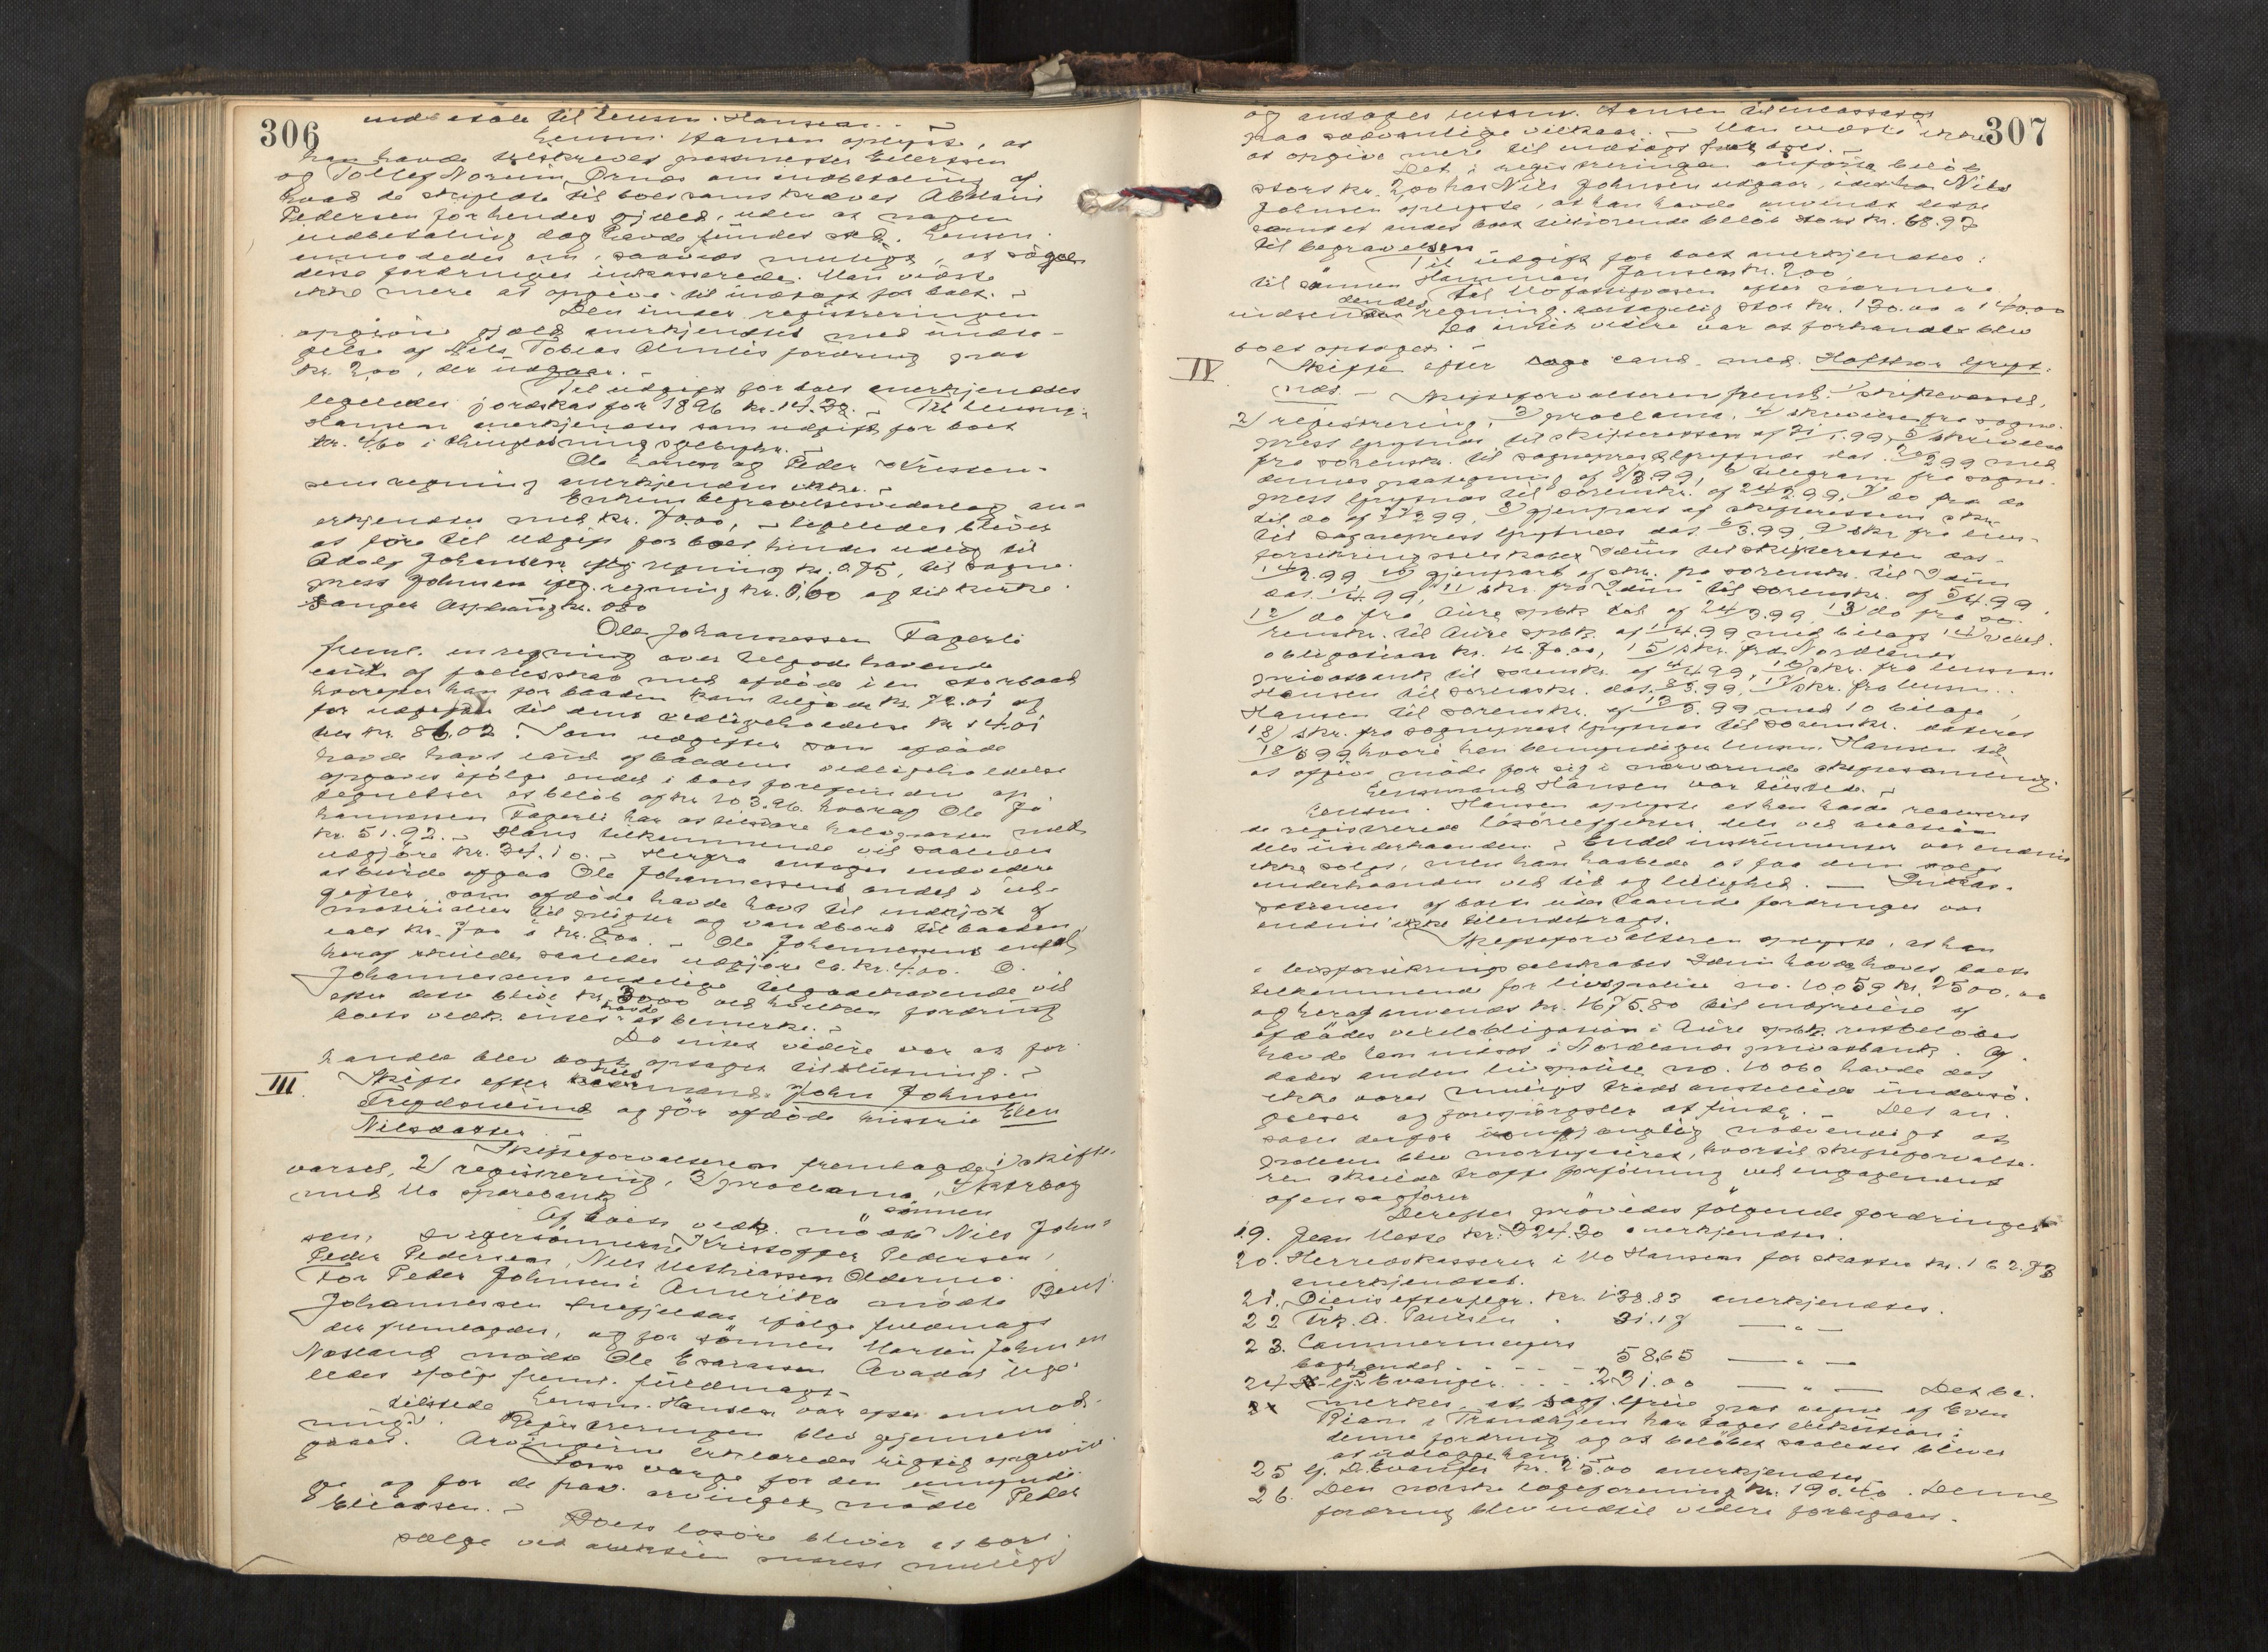 306
indbetale til lensm. Hansen. -
Lensm. Hansen oplyste, at
han havde tilskrevet postmester Ellertsen
og Tollef Norum Ørnes om indbetaling af
hvad de skyldte til boet samt krævet
Pedersen for hendes gjæld, uden at nogen
indbetaling dog havde fundet sted. Lensm.
anmodedes om, saavidt muligt, at søge
disse fordringer inkasserede. Man vidste
ikke mere at opgive til indtægt for boet. -
Den under registreringen
opgivne gjæld anerkjendtes med undta-
gelse af Nils Tobias Almlis fordring paa
kr. 2,00, der udgaar. -
Til udgift for boet anerkjendtes
ligeledes jordskat for 1896 kr. 14.38. - Til lensm.
Hansen anerkjendtes som udgift for boet
kr. 4.60 i thinglæsningsgebyhr. -
Ole Larsen og Peder
sens regning anerkjendtes ikke. -
Enkens begravelsesvederlag an-
erkjendtes med kr. 70.00, - ligeledes bliver
at føre til udgift for boet hendes udlæg til
Adolf Johansen iflg. regning kr. 0.75, til sogne-
prest Johnsen iflg. regning kr. 8,60 og til kirke-
sanger Asphaug kr. 0.80
Ole Johannessen Fagerli
freml. en regning over tilgodehavende
i anl. af fællesskab med afdøde i en storbaad
hvorefter han for baaden kom tilgode kr. 72.01 og
for udgifter til dens vedligeholdelse kr. 14.01
tils. kr. 86.02. Som udgifter som afdøde
havde havt i anl. af baadens vedligeholdelse
opgaves ifølge endel i boet forefundne op-
tegnelser et beløb af kr. 103.96. hvoraf Ole Jo-
hannessen Fagerli har at tilsvare halvparten med
kr. 51.92. - Hans tilkommende vil saaledes
udgjøre kr. 34.10. - Herfra antages endvidere
at burde afgaa Ole Johannessens andel i ud-
gifter, som afdøde havde havt til indkjøb af
materialier til pligter og vandbord til baaden
ialt kr. 7.00 à kr. 8.00. - Ole Johannessens andel
heraf skulde saaledes udgjøre ca. kr. 4.00. O.
Johannessens endelige tilgodehavende vil
efter dette blive kr. 30.00 ved hvilken fordring
boets vedk. intet havde at bemerke. -
Da intet videre var at for-
handle blev boet optaget til slutning. -
III. Skifte efter John Johnsen
og før afdøde hustru Elen
Nilsdatter.
Skifteforvalteren fremlagde: 1) skifte-
varsel, 2) registrering, 3) proclama,
med Mo sparebank
Af boets vedk. mødte sønnen Nils John-
sen, svigersønnerne Kristoffer Pedersen,
Peder Pedersen, Nils Mathiassen Oldermo.
For Peder Johnsen i Amerika mødte Bent
Johannessen ifølge fuldmagt
der fremlagdes, og for sønnen Morten Johnsen
Næsland mødte Ole Esaiassen lige-
ledes ifølge freml. fuldmagt.
Lensm. Hansen var efter anmod-
ning tilstede. Registreringen blev gjennem-
gaaet. Arvingerne erklæredes rigtig opgivne
Som værge for den umyndi-
ge og for de frav. arvinger mødte Peder
Eliassen. - Boets løsøre bliver at bort-
sælge ved auktion snarest muligt
307
og antages lensm. Hansen til incassator
paa sædvanlige vilkaar. - Man vidste ikke
at opgive mere til indtægt for boet. -
Det i registreringen anførte beløb
stort kr. 200 hos Nils Johnsen udgaar, idet Nils
Johnsen oplyste, at han havde anvendt dette
samt et andet boet tilhørende beløb stort kr. 68.97
til begravelsen
Til udgift for boet anerkjendtes:
til sønnen Herman Jansen kr. 2.00,
til Mo fattigvæsen efter nærmere
indsendende regning antagelig stor kr. 130.00 a 140.00
Da intet videre var at forhandle blev
boet optaget. -
IV. Skifte efter læge cand. med. Grypt-
næs. - Skifteforvalteren freml. 1) skiftevarsel,
2) registrering, 3) proclama, 4) skrivelse fra sogne-
prest Gryptnæs til skifteretten af 31/1.99, 5) skrivelse
fra sorenskr. til sogneprest Gryptnæs dat. 20/2 99 med
dennes paategning af 8/3 99, 6) telegram fra sogne-
prest Gryptnæs til sorenskr. af 24/2.99, 7) do fra do
til do af 27/2 99, 8) gjenpart af skifterettens skr.
til sogneprest Gryptnæs dat. 6/3.99, 9) skr. fra livs-
forsikringsselskabet Idun til skifteretten dat.
14/2.99 10) gjenpart af skr. fra sorenskr. til Idun
dat. 1/4.99, 11) skr. fra Idun til sorenskr. af 5/4.99.
12) do fra Aure spbk dat. af 24/3.99, 13) do fra so-
renskr. til Aure spbk. af 1/4.99 med bilagt 14) vexel-
obligation kr. 1670.00, 15) skr. fra Nordlands
privatbank til sorenskr. af 4/4.99, 16) skr. fra lensm.
Hansen til sorenskr. dat. 8/5.99, 17) skr. fra lensm.
Hansen til sorenskr. af 15/5.99 med 10 bilage,
18) skr. fra sogneprest Gryptnæs til sorenskr. dateret
18/5 99 hvori han bemyndiger lensm. Hansen til
at afgive møde for sig i nærværende skiftesamling.
Lensmand Hansen var tilstede. -
Lensm. Hansen oplyste at han havde realiseret
de registrerede løsøreeffekter, dels ved auktion
dels underhaanden. - Endel instrumenter var endnu
ikke solgt, men han haabede at faa dem solgt
underhaanden ved tid og leilighed. - Inkas-
sationen af boets udestaaende fordringer var
endnu ikke tilendebragt.
Skifteforvalteren oplyste, at han
i livsforsikringsselskabet Idun havde hævet boets
tilkommende for livspolice no. 10059 kr. 2500.00
og heraf anvendt kr. 1675.80 til indfrielse af
afdødes vexelobligation i Aure spbk. restbeløbet
havde han indsat i Nordlands privatbank. Af-
dødes anden livspolice no. 10060 havde det
ikke været muligt trods anstillede undersø-
gelser og forespørgsler at finde. - Det an-
saaes derfor nødvendigt at
policen blev mortificeret, hvortil skifteforvalte-
ren skulde træffe forføining ved engagement
af en sagfører
Derefter prøvedes følgende fordringer
19. Jean Messe kr. 324.30 anerkjendtes.
20. Herredskasserer i Mo Hansen for skatter kr. 162.73
anerkjendtes.
21. efterfølgr. kr. 138.83 anerkjendtes.
22 Frk. A. Paulsen . 31.17 — " —
23. Cammermeyers
boghandel . . . . . 58,65 — " —
24 Evanger . . . . 231.00 — " — Det be-
merkes, at sagf. paa vegne af Even
i Trondhjem har taget execution i
denne fordring og at beløbet saaledes bliver
at udlægge ham. -
25 Evanger kr. 25.00 anerkjendtes -
26. Den norske lægeforening kr. 190.40. Denne
fordring blev indtil videre forbigaaet.